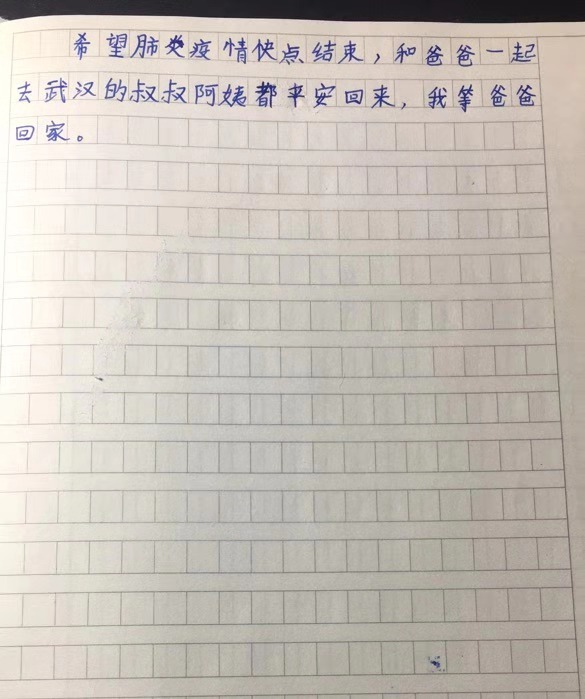 希望肺炎疫情快点结束，和爸爸一起
去武汉的叔叔阿姨都平安回来，我等爸爸
回家。